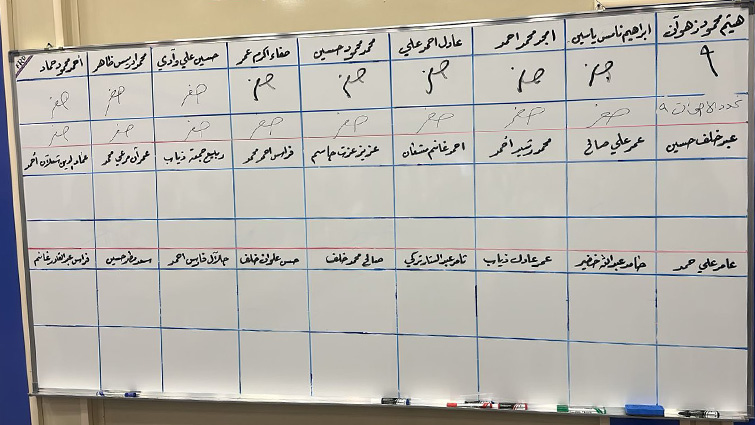 هيثم محمود زهوان ابراهيم نامس ياسين امجد محمد احمد عادل احمد علي محمد محمود حسين صفاء اكرم عمر حسين علي وادي محمد ادريس ظاهر احمد محمود حماد
٩ صفر صفر صفر صفر صفر صفر صفر صفر
عدد الاصوات ٩ صفر صفر صفر صفر صفر صفر صفر صفر
عبد خلف حسين عمر علي صالح محمد رشيد احمد احمد غانم مشعان عزيز عزت جاسم فراس احمد محمد ربيع جمعة ذياب عمران مرعي محمد
عامر علي حمد حامد عبدالله خضير عمر عادل ذياب ثامر عبدالستار تركي صالح محمد خلف حسن علوان خلف جلال فارس احمد سعد مطر حسين فراس عبدالقادر غانم